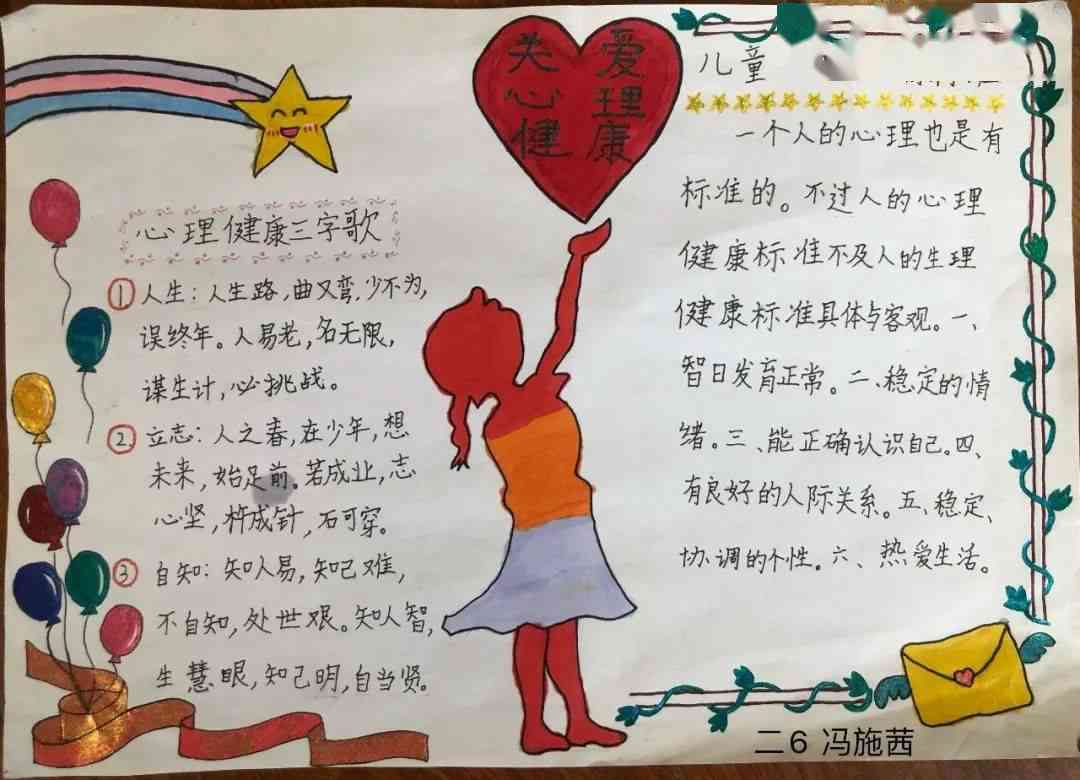 关爱
心理
健康
心理健康三字歌
①人生：人生路，曲又弯，少不为，
误终年。人易老，名无限，
谋生计，必挑战。
②立志：人之春，在少年，想
未来，始足前。若成业，志
心坚，杵成针，石可穿。
③自知：知人易，知己难，
不自知，处世艰。知人智，
生慧眼，知己明，自当贤。
儿童
一个人的心理也是有
标准的。不过人的心理
健康标准不及人的生理
健康标准具体与客观。一、
智日发育正常。二、稳定的情
绪。三、能正确认识自己。四、
有良好的人际关系。五、稳定、
协调的个性。六、热爱生活。
二6 冯施茜